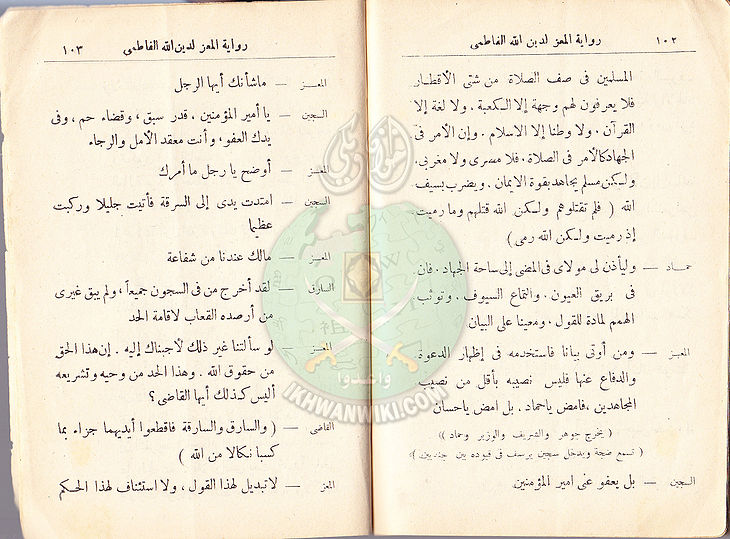 ١٠٢ رواية المعز لدين الله الفاطمى
المسلمين فى صف الصلاة من شتى الأقطار
فلا يعرفون لهم وجهة إلا الكعبية . ولا لغة إلا
القرآن . ولا وطنا إلا الاسلام . وإن الأمر فى
الجهاد كالأمر فى الصلاة . فلا مسرى ولا مغربى .
ولكن مسلم يجاهد بقوة الايمان . ويضرب بسيف
الله ( فلم تقتلوهم ولكن الله قتلهم وما رميت
إذ رميت ولكن الله رمى )
حماد — وليأذن لى مولاى فى المضى إلى ساحة الجهاد . فان
فى بريق العيون . والتماع السيوف . وتوثب
الهمم لمادة للقول . ومعينا على البيان
المعز — ومن أوتى بيانا فاستخدمه فى إظهار الدعوة
والدفاع عنها فليس نصيبه بأقل من نصيب
المجاهدين ، فامض ياحماد . بل امض ياحسان
( يخرج جوهر والشريف والوزير وحماد )
( تسمع ضجة ويدخل سجين يرسف فى قيوده بين جنديين )
السجين — بل يعفو عنى امير المؤمنين
رواية المعز لدين الله الفاطمى ١٠٣
المعز — ماشأنك أيها الرجل
السجين — يا أمير المؤمنين . قدر سبق ، وقضاء حم ، وفى
يدك العفو ، وأنت معقد الأمل والرجاء
المعز — أوضح يا رجل ما أمرك
السجين — امتدت يدى إلى السرقة فأتيت جليلا وركبت
عظيما
المعز — مالك عندنا من شفاعة
السارق — لقد أخرج من فى السجون جميعاً ، ولم يبق غيرى
من أرصده القعاب لاقامة الحد
المعز — لو سألتنا غير ذلك لأجبناك إليه . إن هذا الحق
من حقوق الله . وهذا الحد من وحيه وتشريعه
أليس كذلك أيها القاضى ؟
القاضى — ( والسارق والسارقة فاقطعوا أيديهما جزاء بما
كسبا نكالا من الله )
المعز — لا تبديل لهذا القول ، ولا استئناف لهذا الحكم
وأعدوا
IKHWANWIKI.COM